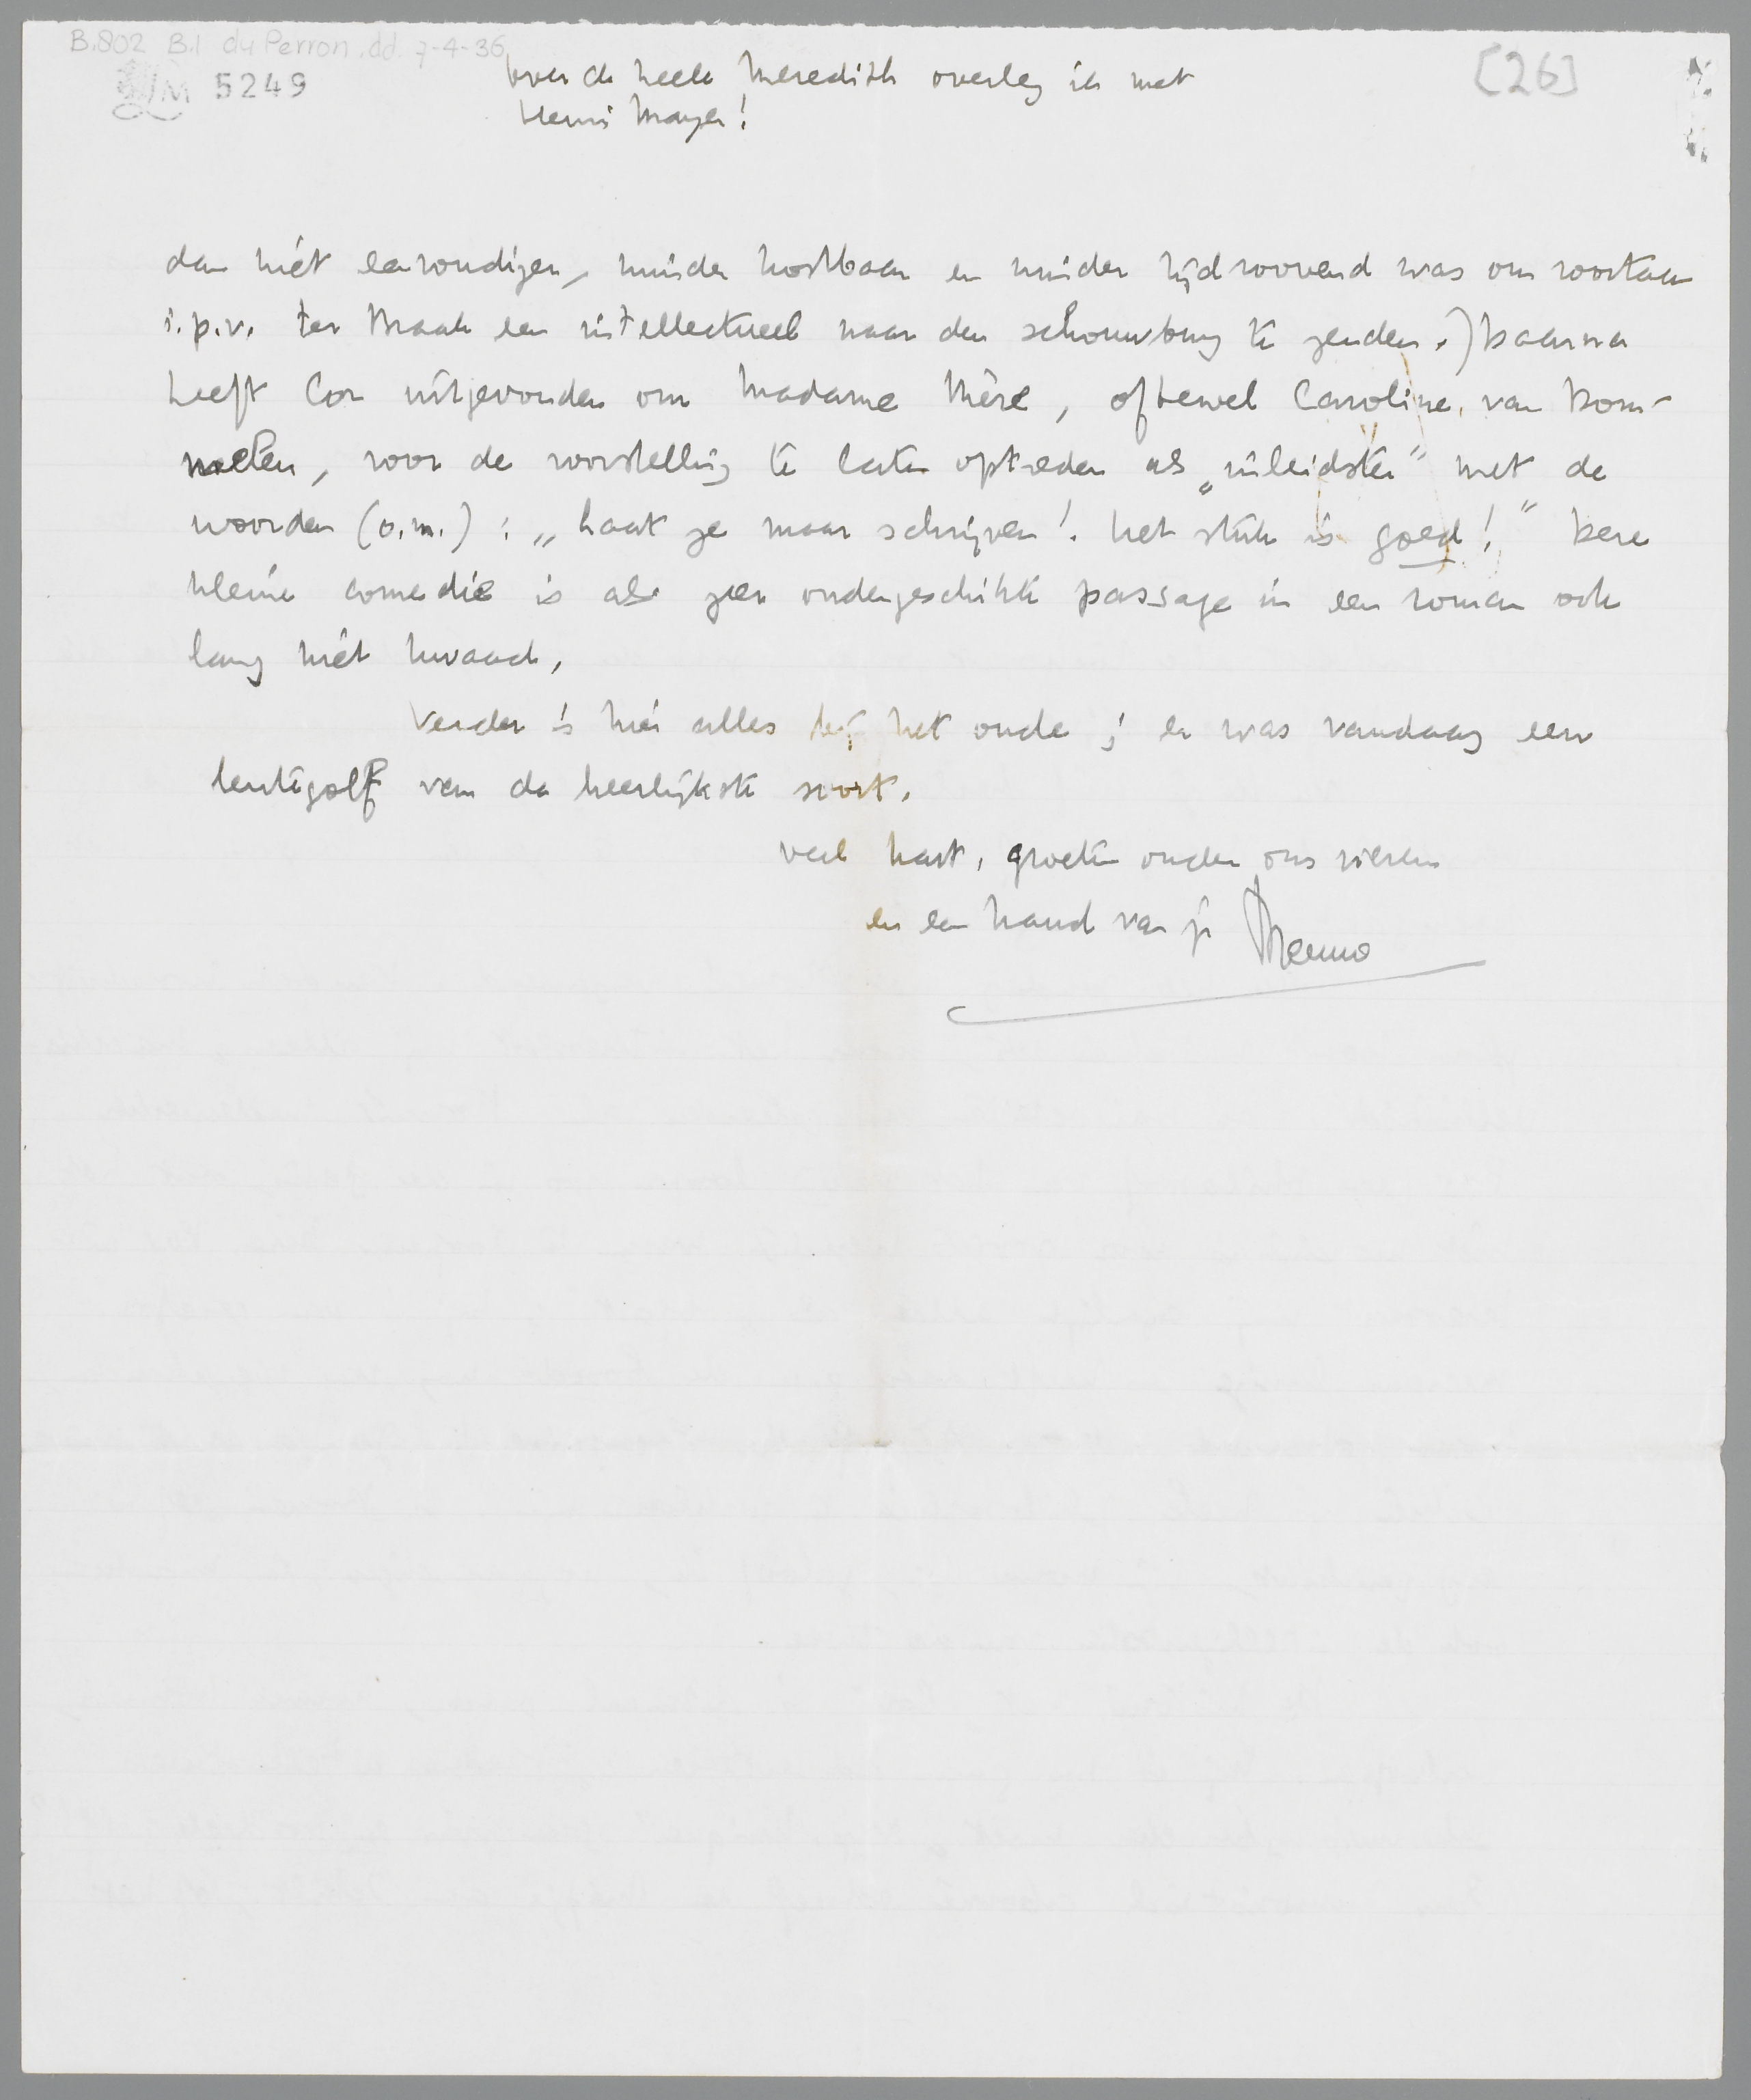 B.802 B.I du Perron, dd. 7-4-36
LM 5249
[26]
Over de heele Meredith overleg ik met
Henri Mayer!
dan niet eenvoudiger, minder kostbaar en minder tijdroovend was om voortaan
i.p.v. ter Braak een intellectueel naar den schouwburg te zenden.) Daarna
heeft Cor uitgevonden om Madame Mère, oftewel Caroline van Dom-
melen, voor de voorstelling te laten optreden als „inleidster” met de
woorden (o.m.): „Laat ze maar schrijven! Het stuk is goed!” Deze
kleine comedie is als zeer ondergeschikte passage in een roman ook
lang niet kwaad.
Verder is hier alles bij het oude; er was vandaag een
lentegolf van de heerlijkste soort.
veel hart. groeten onder ons vieren
en een hand van je Menno